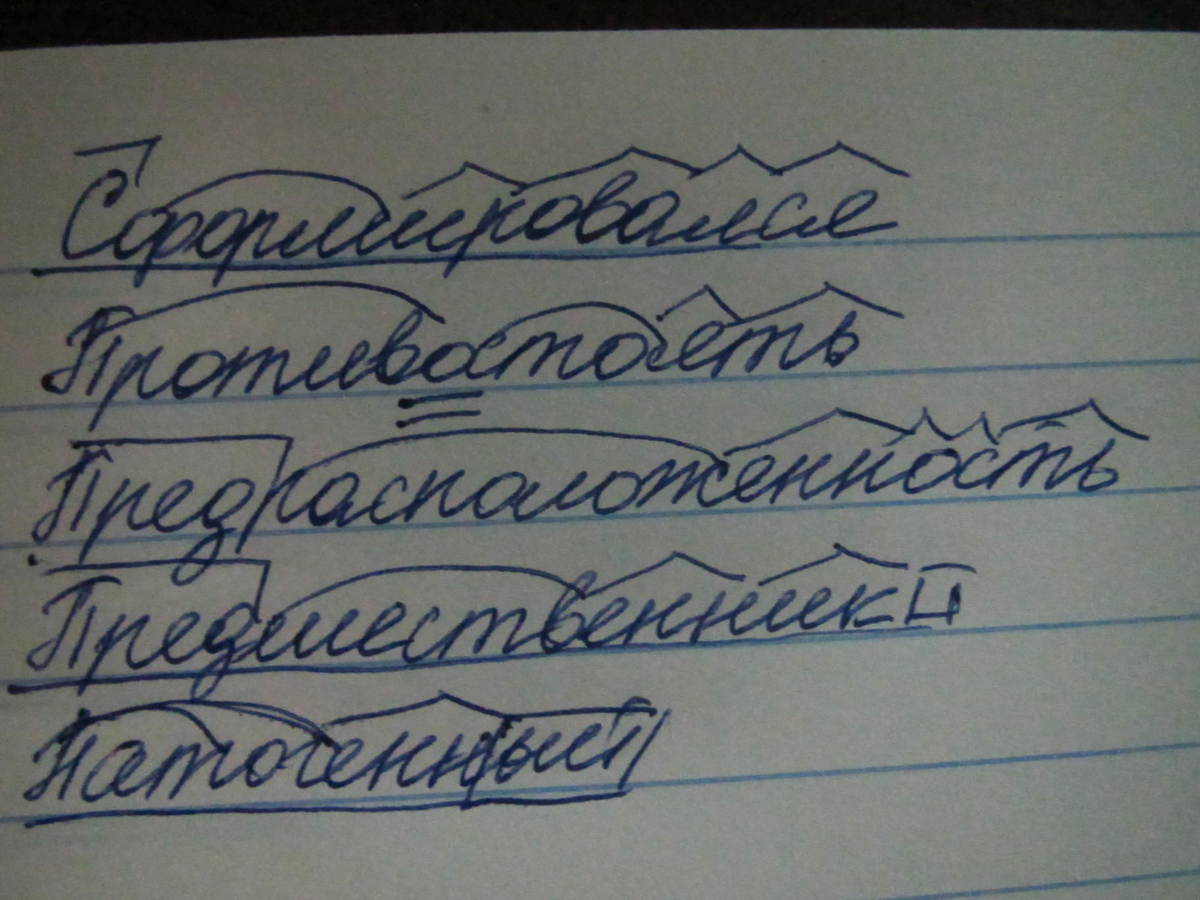 Сформировался
Противостоять
Предрасположенность
Предшественники
Патогенный